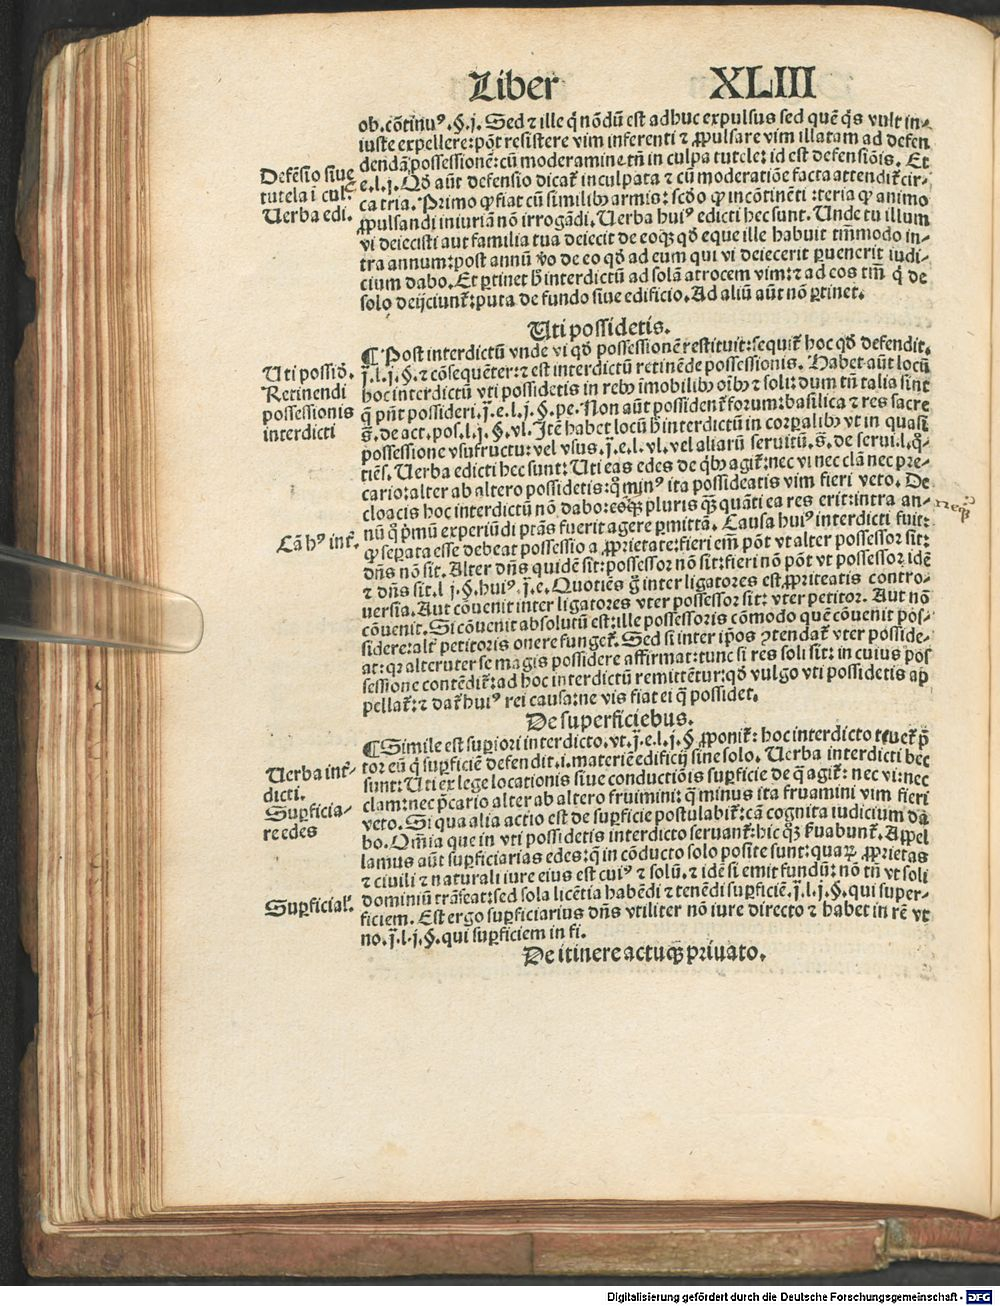 Liber XLIII
ob. cōtinuꝰ. §. j. Sed ⁊ ille q̄ nōdū est adhuc expulsus sed quē q̄s vult in-
iuste expellere: pōt resistere vim inferenti ⁊ ꝓpulsare vim illatam ad defen
dendā possessionē: cū moderamine tn̄ in culpa tutele: id est defensiōis. Et
e. l. j. Qḋ aūt defensio dicat̄ inculpata ⁊ cū moderatiōe facta attendit̄ cir-
ca tria. Primo ꝙ fiat cū similibꝫ armis: scḋo ꝙ incōtinēti: teria ꝙ animo
ꝓpulsandi iniuriā nō irrogādi. Uerba huiꝰ edicti hec sunt. Unde tu illum
vi deiecisti aut familia tua deiecit de eoqꝫ qḋ eque ille habuit tm̄modo in-
tra annum: post annū v̊o de eo qḋ ad eum qui vi deiecerit ꝑuenerit iudi-
cium dabo. Et ꝑtinet h̄ interdictū ad solā atrocem vim: ⁊ ad eos tm̄ q̄ de
solo deijciunt̄: puta de fundo siue edificio. Ad aliū aūt nō ꝑtinet.
Defēsio siue
tutela ī cul.
Uerba edi.
Uti possidetis.
¶ Post interdictū vnde vi qḋ possessionē restituit: sequit̄ hoc qḋ defendit.
j̄. l. j. §. ⁊ cōsequēter: ⁊ est interdictū retinēde possessionis. Habet aūt locū
hoc interdictū vti possidetis in rebꝫ īmobilibꝫ oībꝫ ⁊ soli: dum tn̄ talia sint
q̄ pn̄t possideri. j̄. e. l. j. §. pe. Non aūt possident̄ forum: basilica ⁊ res sacre
s̄. de act. pos. l. j. §. vl. Itē habet locū h̄ interdictū in corꝑalibꝫ vt in quasi
possessione vsufructu: vel vsus. j̄. e. l. vl. vel aliarū seruitū. s̄. de serui. l. q̄-
tiēs. Uerba edicti hec sunt: Uti eas edes de q̄bꝫ agit̄: nec vi nec clā nec pre-
cario: alter ab altero possidetis: q̄ minꝰ ita possideatis vim fieri veto. De
cloacis hoc interdictū nō dabo: eqꝫ pluris qꝫ quāti ea res erit: intra an-
nū q̄ p̄mū experiūdi ptās fuerit agere ꝑmittā. Causa huiꝰ interdicti fuit:
ꝙ seꝑata esse debeat possessio a ꝓprietate: fieri em̄ pōt vt alter possessor sit:
dn̄s nō sit. Alter dn̄s quidē sit: possessor nō sit: fieri nō pōt vt possessor idē
⁊ dn̄s sit. l. j. §. huiꝰ. j̄. e. Quotiēs g̊ inter ligatores est ꝓpriteatis contro-
uersia. Aut cōuenit inter ligatores vter possessor sit: vter petitor. Aut nō
cōuenit. Si cōuenit absolutū est: ille possessoris cōmodo quē cōuenit pos-
sidere: alt̄ petitoris onere funget̄. Sed si inter ip̄os ꝯtendat̄ vter posside-
at: qꝛ alteruter se magis possidere affirmat: tunc si res soli sit: in cuius pos
sessione contēdit̄: ad hoc interdictū remittētur: qḋ vulgo vti possidetis ap
pellat̄: ⁊ dat̄ huiꝰ rei causa: ne vis fiat ei q̄ possidet.
Uti possiḋ.
Retinendi
possessionis
interdicti
Cā hꝰ int̄.
neqꝫ
De superficiebus.
¶ Simile est suꝑiori interdicto. vt. j̄. e. l. j. § ꝓponit̄: hoc interdicto tuet̄ p̄
tor eū q̄ suꝑficiē defendit. i. materiē edificij sine solo. Uerba interdicti hec
sunt: Uti ex lege locationis siue conductiōis suꝑficie de q̄ agit̄: nec vi: nec
clam: nec p̄cario alter ab altero fruimini: q̄ minus ita fruamini vim fieri
veto. Si qua alia actio est de suꝑficie postulabit̄: cā cognita iudicium da
bo. Om̄ia que in vti possidetis interdicto seruant̄: hic qꝫ ſ̄uabunt̄. Aꝑpel
lamus aūt suꝑficiarias edes: q̄ in cōducto solo posite sunt: quaꝝ ꝓprietas
⁊ ciuili ⁊ naturali iure eius est cuiꝰ ⁊ solū. ⁊ idē si emit fundū: nō tn̄ vt soli
dominiū trāseat: sed sola licētia habēdi ⁊ tenēdi suꝑficiē. j̄. l. j. §. qui super-
ficiem. Est ergo suꝑficiarius dn̄s vtiliter nō iure directo ⁊ habet in rē vt
no. j̄. l. j. §. qui suꝑficiem in fi.
Uerba int̄-
dicti.
Suꝑficia-
re edes
Suꝑficial̄.
De itinere actuqꝫ priuato.
Digitalisierung gefördert durch die Deutsche Forschungsgemeinschaft - DFG